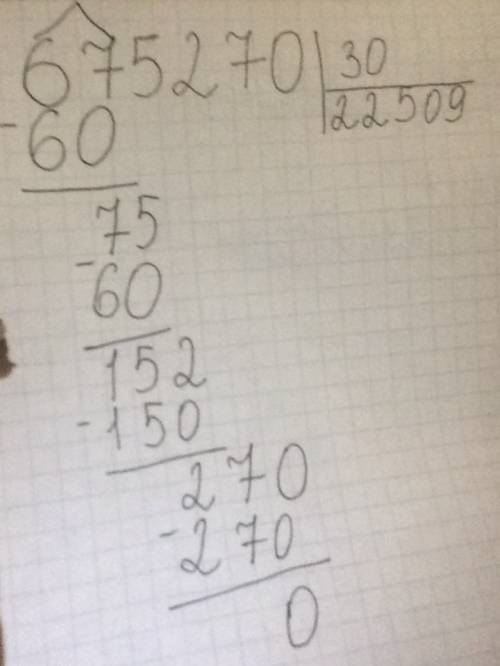 675270 30
22509
- 60
75
- 60
152
- 150
270
- 270
0